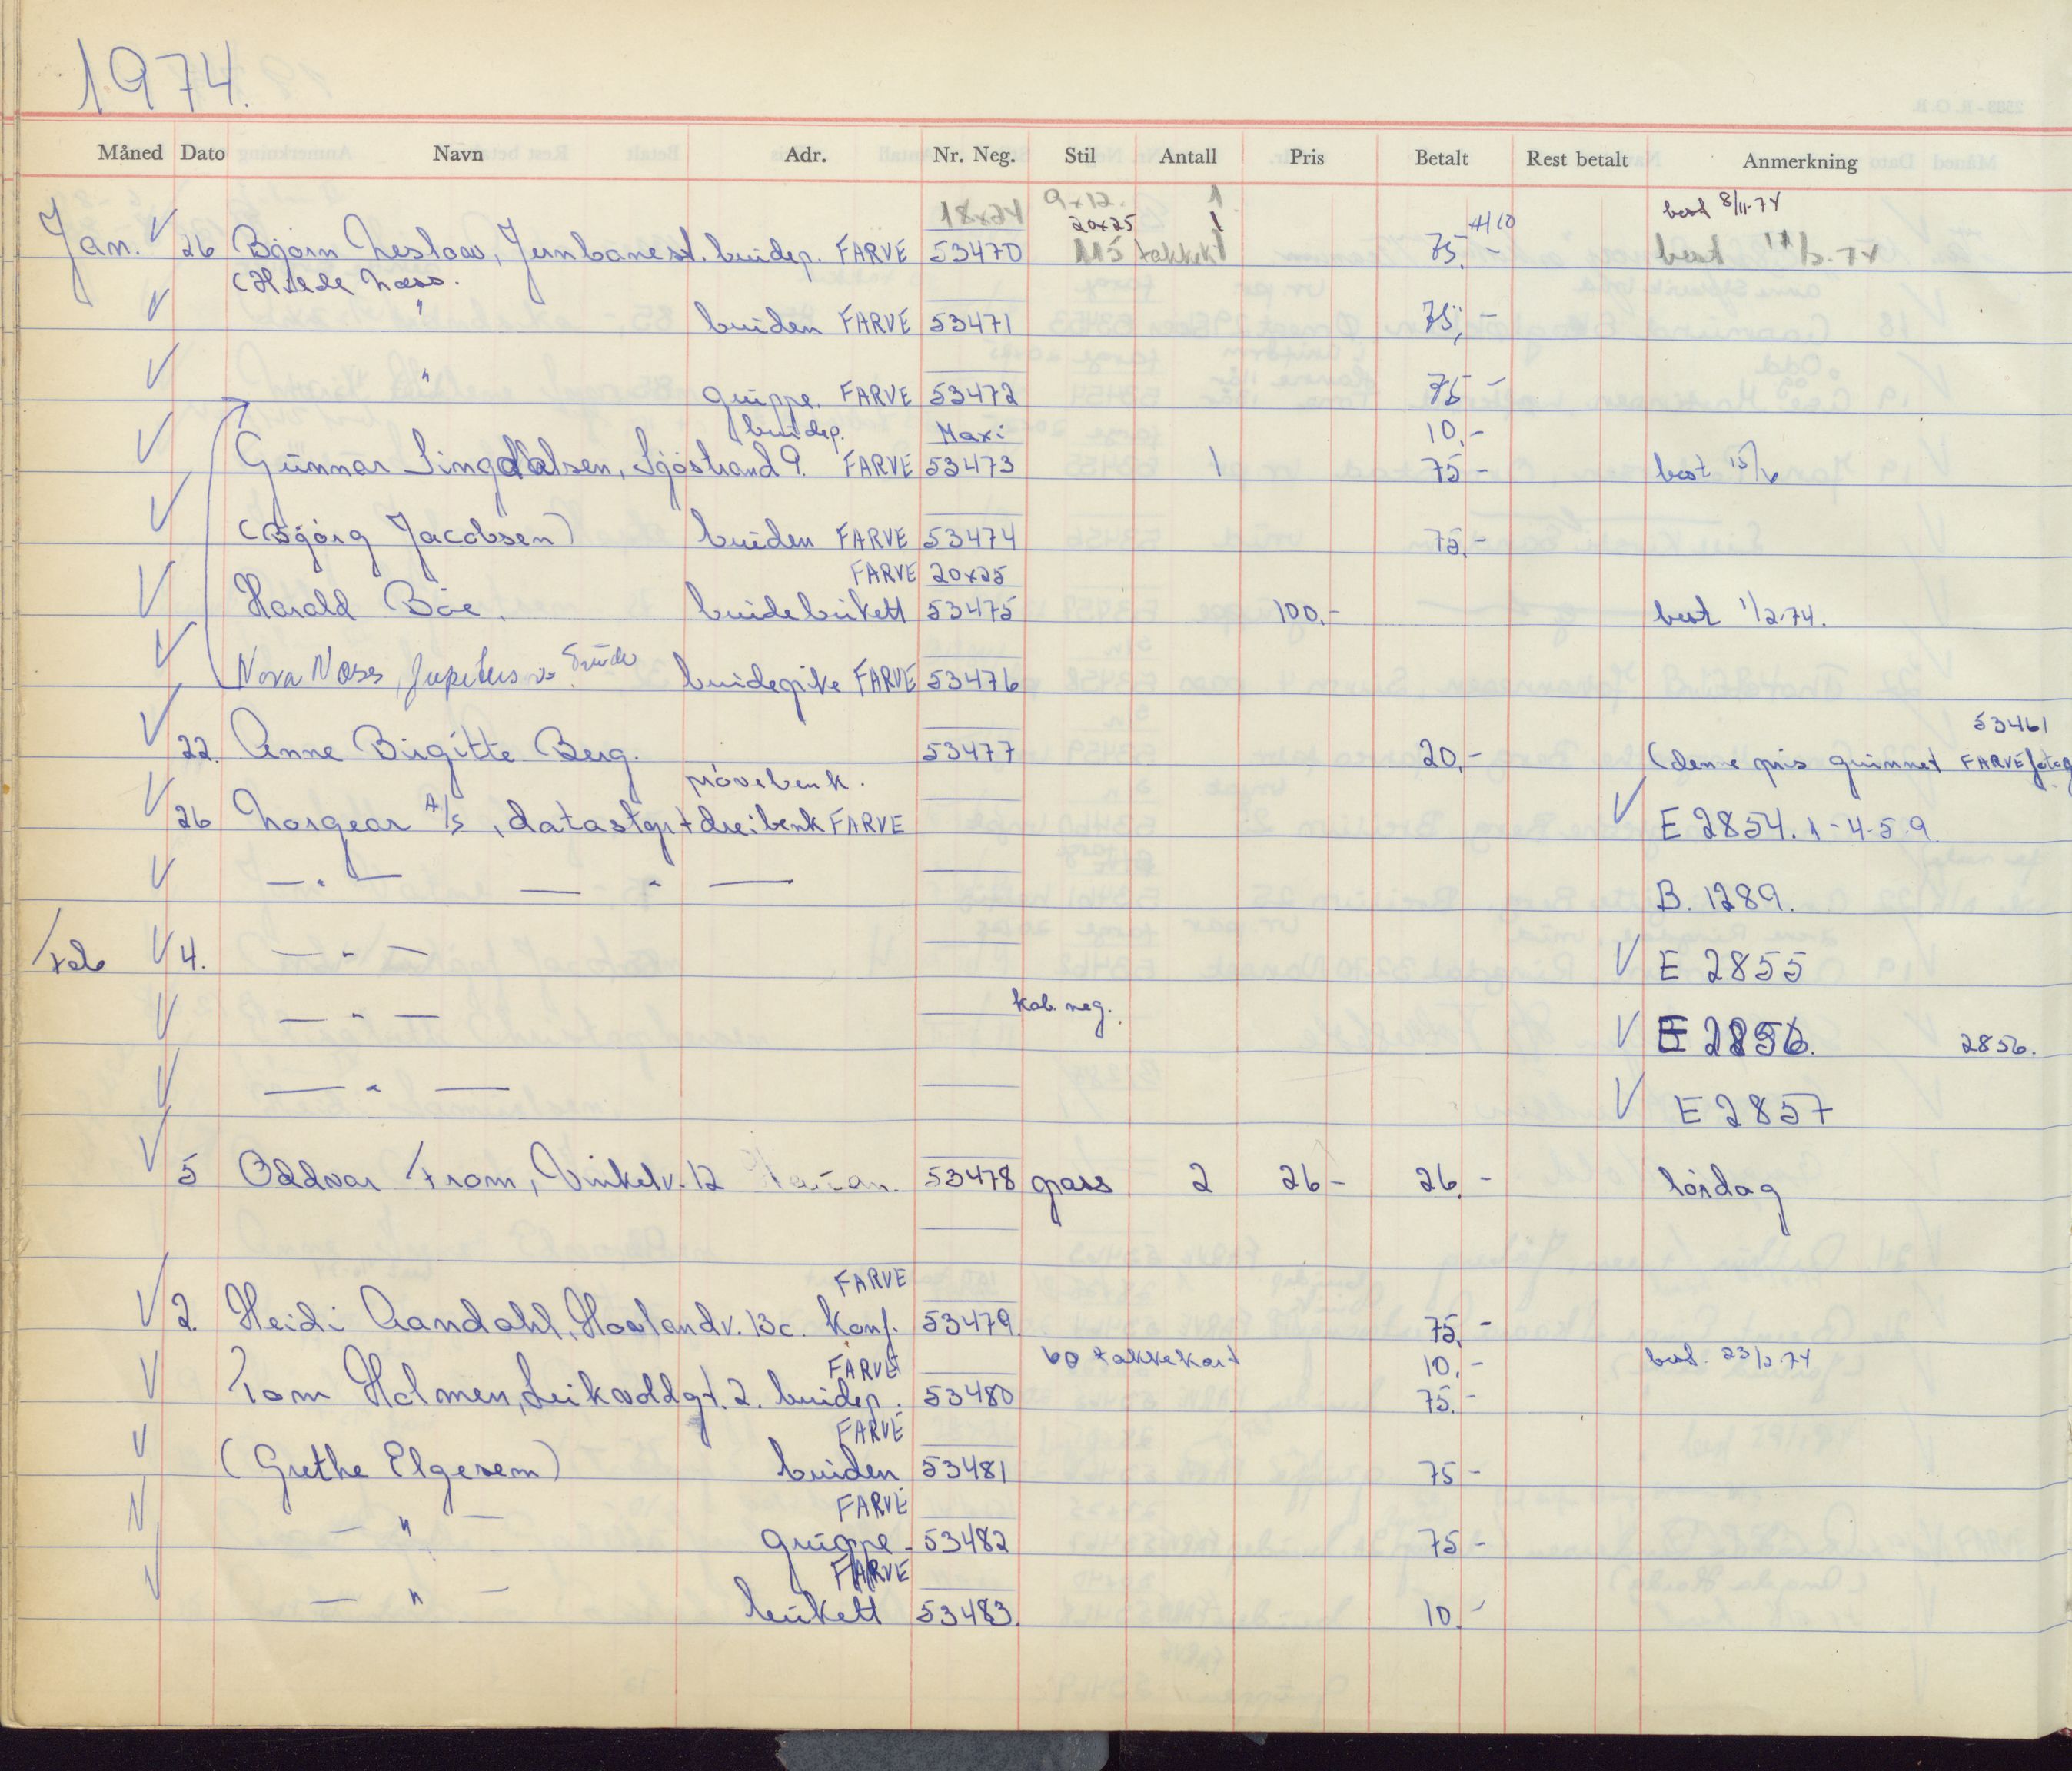 1974.
Måned Dato Navn Adr. Nr. Neg. Stil Antall Pris Betalt Rest betalt Anmerkning
18x24 9x12. 1 best 8/11-74
20x25 1
Jan. 26 Bjørn Neslow, Jernbanest. brudep. FARVE 53470 115 takkek 75.- best 2.74
(Hilde Næss.
" bruden FARVE 53471 75,-
" gruppe. FARVE 53472 75-
brudep. Maxi 10.-
Gunnar Lingdalsen, Sjøstrand 9. FARVE 53473 1 75- best 15/6
(Bjørg Jacobsen) bruden FARVE 53474 75.-
FARVE 20x25
Harald Bøe. brudebukett 53475 100.- best 1/2-74.
Nora Næss, Jupiters brudepike FARVE 53476
53461
22. Anne Birgitte Berg. 53477 20.- (denne pris grunnet FARVE
prøvebenk.
26 Norgear A/S, datastyrt dreibenk FARVE E 2854. 1-4-5-9
— " — — " — B. 1289.
Feb 4. — " — E 2855
— " — kab. neg. E 2856. 2856.
— " — E 2857
5 Oddvar From, Vinkelv. 12 53478 pass 2 26- 26.- lørdag
FARVE
2. Heidi Aandahl, Haslandv. 13c. konf. 53479. 75.-
FARVE 60 takkekort 10.- best. 23/2-74
Tom Holmen, Leikvollgt. 2. brudep. 53480 75.-
FARVE
(Grethe Elgesem) bruden 53481 75-
FARVE
— " — gruppe 53482 75-
FARVE
— " — bukett 53483. 10.-